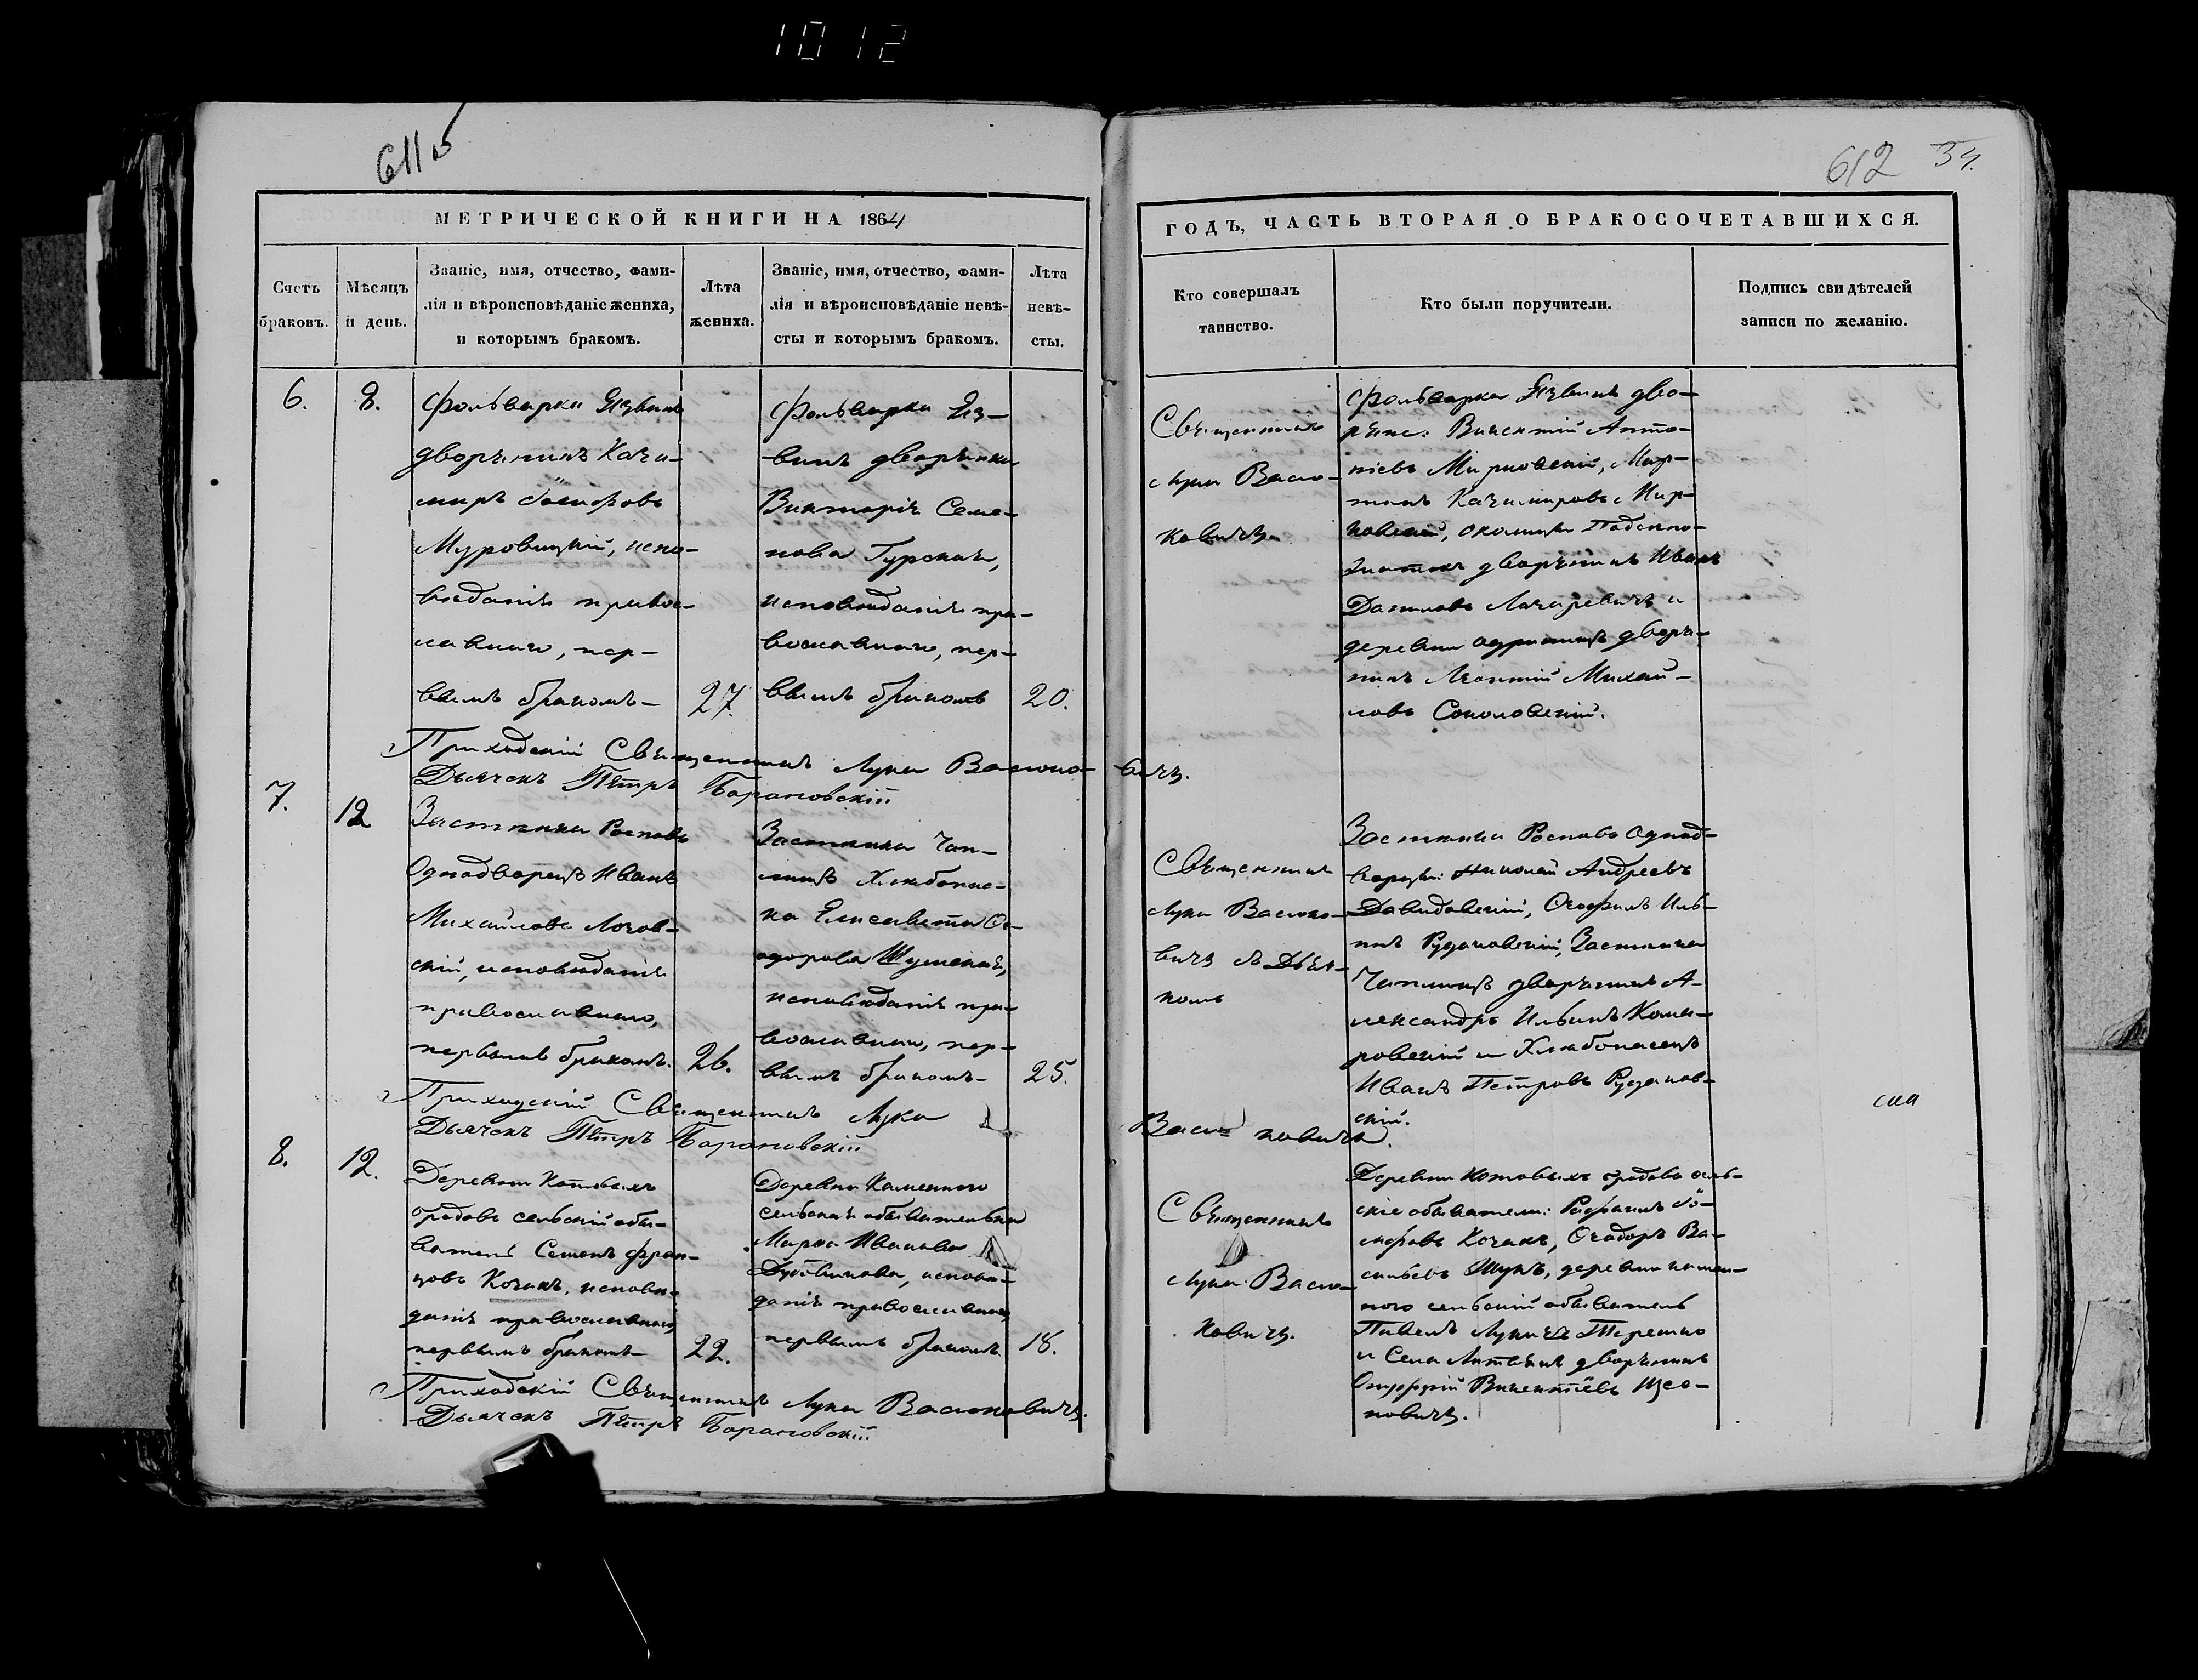 1012
611 об
612 34.
МЕТРИЧЕСКОЙ КНИГИ НА 1864
ГОДЪ, ЧАСТЬ ВТОРАЯ О БРАКОСОЧЕТАВШИХСЯ.
Счетъ браковъ.
Мѣсяцъ и день.
Званіе, имя, отчество, фами-
лія и вѣроисповѣданіе жениха,
и которымъ бракомъ.
Лѣта
жениха.
Званіе, имя, отчество, фами-
лія и вѣроисповѣданіе невѣ-
сты и которымъ бракомъ.
Лѣта
невѣ-
сты.
Кто совершалъ
таинство.
Кто были поручители.
Подпись свидѣтелей
записи по желанію.
6.
8.
Фольварка Язвинъ
дворянинъ Кази-
миръ Іосифовъ
Муровицкій, испо-
вѣданія правос-
лавнаго, пер-
вымъ бракомъ
27.
Фольварка Яз-
винъ дворянка
Викторія Семе-
нова Гурская,
исповѣданія пра-
вославнаго, пер-
вымъ бракомъ
20.
Священникъ
Лука Васю-
ковичъ
Фольварка Язвинъ дво-
ряне: Викентій Анто-
ніевъ Мирковскій, Мар-
тинъ Казимировъ Мир-
ковскій, околицы
дворянинъ Иванъ
Даниловъ Лазаревичъ и
деревни дворя-
нинъ Леонтій Михай-
ловъ Соколовскій.
Приходскій Священникъ Лука Васюко-вичъ.
Дьячекъ Петръ Барановскій
7.
12
Застѣнка Росповъ
Однодворецъ Иванъ
Михайловъ Лозов-
скій, исповѣданія
православнаго,
первымъ бракомъ.
26.
Застѣнка Чап-
лицъ Хлѣбопаш-
ка Елисавета Ѳе-
одорова Шумская,
исповѣданія пра-
вославнаго, пер-
вымъ бракомъ
25.
Священникъ
Лука Васюко-
вичъ съ Дьяч-
комъ
Застѣнка Росповъ Однод-
ворцы: Николай Андреевъ
Давидовскій, Ѳеофилъ Иль-
инъ Рудаковскій, Застѣнка
Чаплицъ дворянинъ А-
лександръ Ильинъ Кома-
ровскій и Хлѣбопашецъ
Иванъ Петровъ Рудаков-
скій.
Приходскій Священникъ Лука Васюковичъ.
Дьячекъ Петръ Барановскій
8.
12.
Деревни Котовыхъ
Градовъ сельскій обы-
ватель Семенъ Фран-
цовъ Козакъ, исповѣ-
данія православнаго,
первымъ бракомъ
22.
Деревни Каменного
сельская обывателька
Марія Иванова
Дубовикова, исповѣ-
данія православнаго,
первымъ бракомъ.
18.
Священникъ
Лука Васю-
ковичъ.
Деревни Котовыхъ Градовъ сель-
скіе обыватели: Рафаилъ Іо-
сифовъ Козакъ, Ѳеодоръ Ва-
сильевъ Шукъ, деревни Камен-
ного сельскій обыватель
Павелъ Лукичъ Терешко
и Села дворянинъ
Онуфрій Викентіевъ
Приходскій Священникъ Лука Васюковичъ.
Дьячекъ Петръ Барановскій